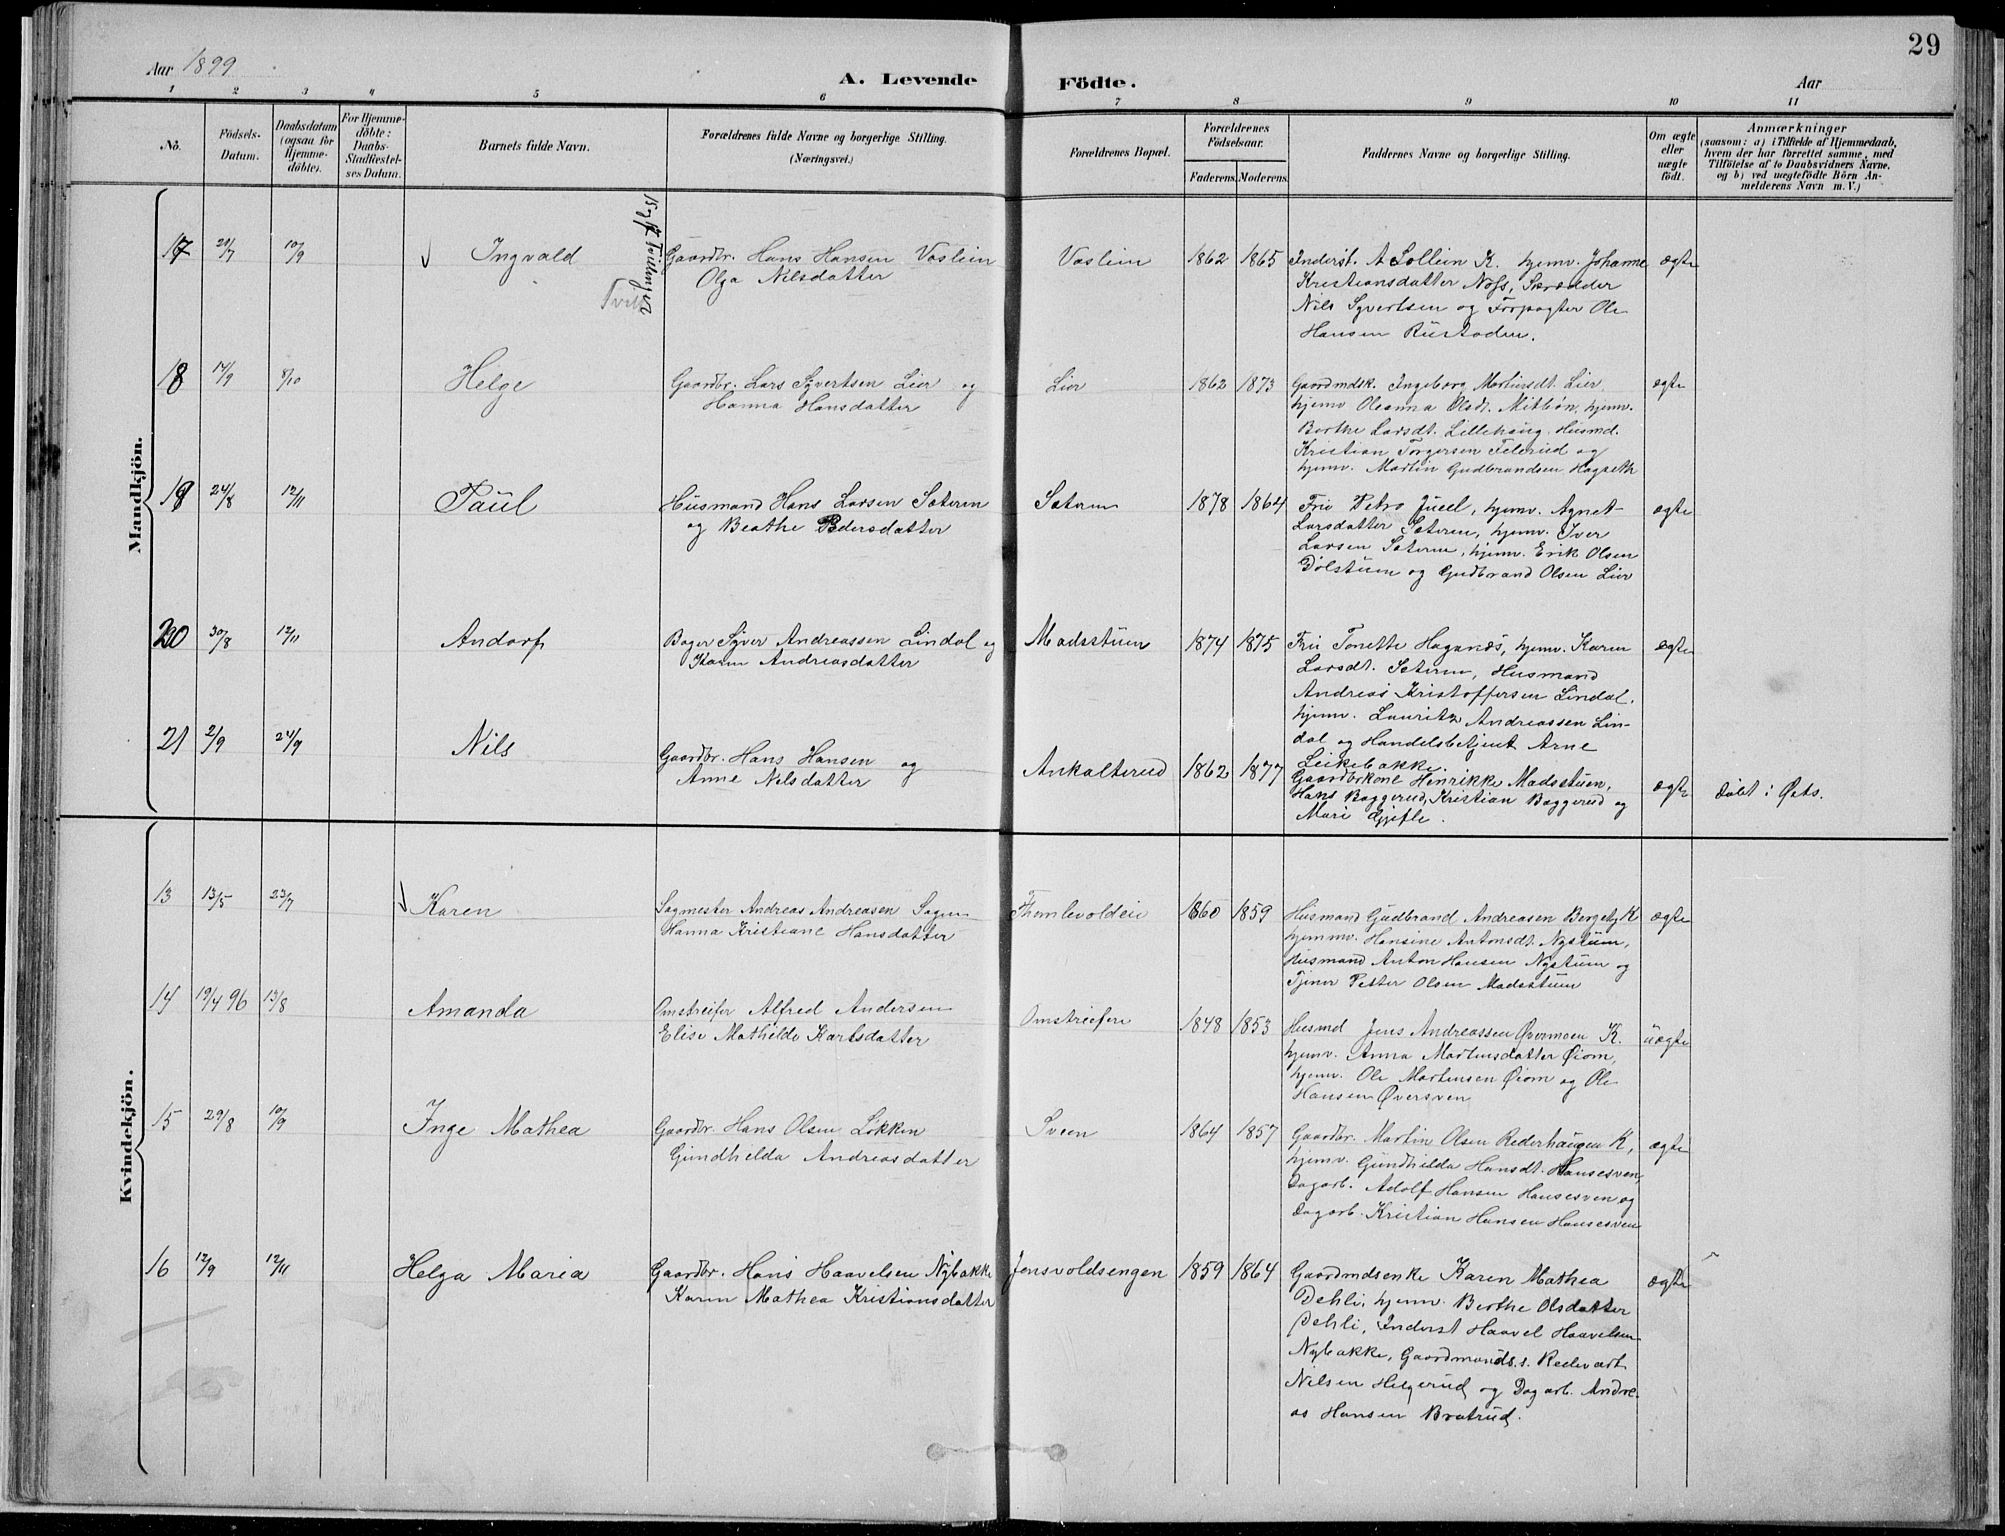 29
Aar 1899
A. Levende Födte.
Aar
1 2 3 4 5 6 7 8 9 10 11
No.
Födsels-
Datum.
Daabsdatum
(ogsaa for
Hjemme-
döbte).
For Hjemme-
döbte:
Daabs-
Stadfæstel-
ses Datum.
Barnets fulde Navn.
Forældrenes fulde Navne og borgerlige Stilling.
(Næringsvei.)
Forældrenes Bopæl.
Forældrenes
Födselsaar.
Faderens. Moderens.
Faddernes Navne og borgerlige Stilling.
Om ægte
eller
uægte
födt.
Anmærkninger
(saasom: a) i Tilfælde af Hjemmedaab,
hvem der har forrettet samme, med
Tilföielse af to Daabsvidners Navne,
og b) ved uægtefödte Börn An-
melderens Navn m. V.)
Mandkjön.
17 10/9 Ingvald
Tvillinger
Gaardbr. Hans Hansen Voslien
Olga Nilsdatter
Voslien 1862 1865
Inderst. A Sollien K. hjemv. Johanne
Kristiansdatter Nøss, Skrædder
Nils Syvertsen og Forpagter Ole
Hansen Rustaden.
ægte
18 17/9 8/10 Helge
Gaardbr. Lars Syvertsen Lier og
Hanna Hansdatter
Lier 1862 1873
Gaardmdsk. Ingeborg Martinsdt. Lier,
hjemv Oleanna Olsdt. Mitbøn, hjemv.
Berthe Larsdt. Lillehaug, Husmd.
Kristian Torgersen Felerud og
hjemv. Martin Gudbrandsen Hagseth
ægte
18 24/8 12/11 Paul
Husmand Hans Larsen Sæteren
og Beathe Pedersdatter
Sæteren 1878 1864
Fru Petra Juell, hjemv. Agnet
Larsdatter Sæteren, hjemv. Iver
Larsen Sæteren, hjemv. Erik Olsen
Dølstuen og Gudbrand Olsen Lier
ægte
20 30/8 12/11 Andorf
Bager Syver Andreassen Lindal og
Karen Andreasdatter
Madsstuen 1874 1875
Fru Tonette Haganæs, hjemv. Karen
Larsdt. Sæteren, Husmand
Andreas Kristoffersen Lindal.
hjemv. Lauritz Andreassen Lin-
dal og Handelsbetjent Arne
Leikebakke.
ægte
21 2/9 24/9 Nils
Gaardbr. Hans Hansen og
Anne Nilsdatter
Ankalterud 1862 1877
Gaardbrkone Henrikke Madsstuen,
Hans Baggerud, Kristian Baggerud og
Mari Gjefle.
ægte
døbt i Øets.
Kvindekjön.
13 13/5 23/7 Karen
Sagmester Andreas Andreasen Sagen
Hanna Kristiane Hansdatter
1860 1859
Husmand Gudbrand Andreasen K
hjemmv. Hansine Antonsdt. Nystuen,
Husmand Anton Hansen Nystuen og
Tjener Petter Olsen Madsstuen
ægte
14 19/4 96 13/8 Amanda
Omstreifer Alfred Andersen
Elise Mathilde Karlsdatter
Omstreifere 1848 1853
Husmd Jens Andreassen Øvermoen K.
hjemv. Anna Martinsdatter Øiom,
hjemv. Ole Martinsen Øiom og Ole
Hansen Øversven
uægte
15 29/8 10/9 Inge Mathea
Gaardbr. Hans Olsen Løkken
Gundhilda Andreasdatter
Sveen 1864 1857
Gaardbr. Martin Olsen Rederhaugen K,
hjemv. Gundhilda Hansdt. Hansesven,
Dagarb. Adolf Hansen Hansesven og
Dagarb. Kristian Hansen Hansesven
ægte
16 12/9 12/11 Helga Maria
Gaardbr. Hans Haavelsen Nybakke
Karen Mathea Kristiansdatter
Jensvoldsengen 1859 1864
Gaardmdsenke Karen Mathea
Dehli, hjemv. Berthe Olsdatter
Dehli, Inderst Haavel Haavelsen
Nybakke, Gaardmands.s. Redvart
Nilsen Helgerud og Dagarb. Andre-
as Hansen Bratrud.
ægte